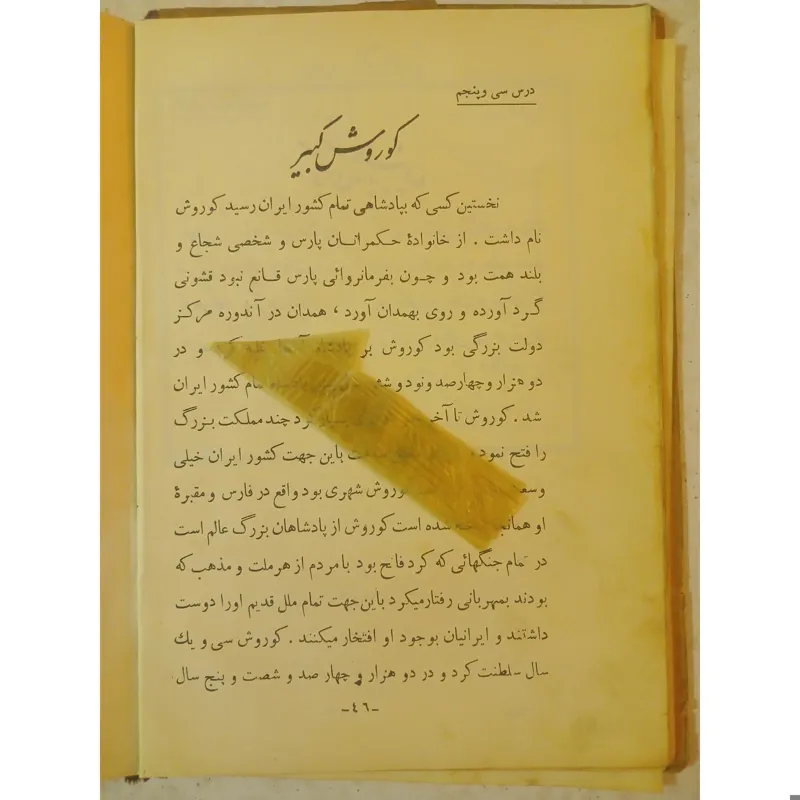 درس سی وپنجم
کوروش کبیر
نخستین کسی که بپادشاهی تمام کشور ایران رسید کوروش
نام داشت . از خانوادهٔ حکمرانان پارس و شخصی شجاع و
بلند همت بود و چون بفرمانروائی پارس قانع نبود قشونی
گرد آورده و روی بهمدان آورد ، همدان در آندوره مرکز
دولت بزرگی بود کوروش بر پادشاه و در
دو هزار و چهارصد و نود و تمام کشور ایران
شد . کوروش تا کرد چند مملکت بزرگ
را فتح نمود باین جهت کشور ایران خیلی
کوروش شهری بود واقع در فارس و مقبرهٔ
او شده است کوروش از پادشاهان بزرگ عالم است
در تمام جنگهائی که کرد فاتح بود با مردم از هر ملت و مذهب که
بودند بمهربانی رفتارمیکرد باین جهت تمام ملل قدیم اورا دوست
داشتند و ایرانیان بوجود او افتخار میکنند . کوروش سی و یك
سال سلطنت کرد و در دو هزار و چهار صد و شصت و پنج سال
-٤٦-